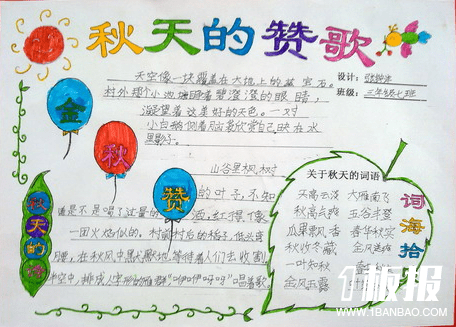 秋天的赞歌
天空像一块覆盖在大地上的蓝宝石。
村外那个小池塘睁着碧澄澄的眼睛,
凝望着这美好的天色。一对
小白鹅侧着
欣赏自己映在水
里影子。
设计:
班级:三年级七班
金
秋
赞
山谷里枫树
的叶子,不知
道是不是喝了过量的酒,红得像
一团火焰似的。村前村后的稻子,低
腰,在秋风中默默地等待着人们去收割
半空中,排成人字形的雁群"咿咿呀呀"唱着歌。
秋天的诗
关于秋天的词语
天高云淡 大雁南飞
秋高气爽 五谷丰登
瓜果飘香 春华秋实
秋收冬藏
一叶知秋
金风玉露
词海拾
1板报
WWW.1BANBAO.COM